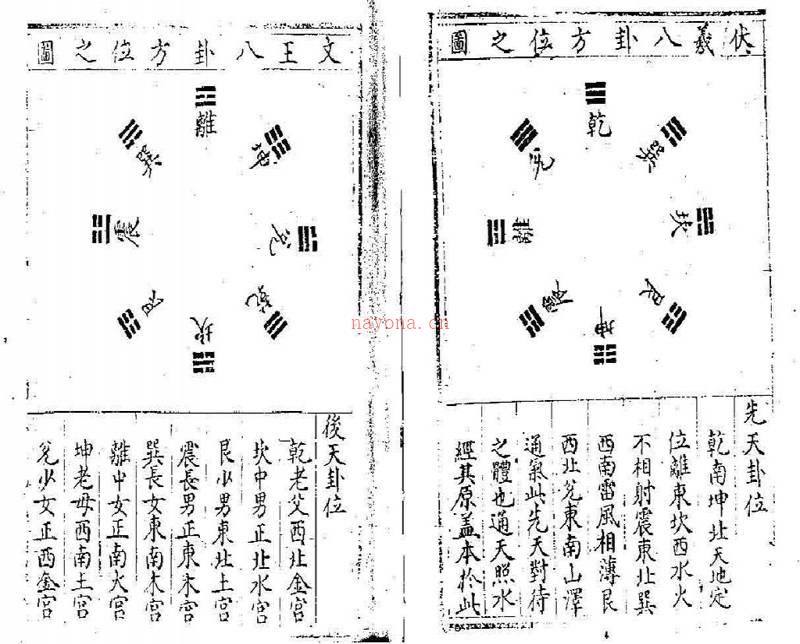 伏羲八卦方位之圖
乾
兌
巽
離
坎
震
艮
坤
先天卦位
乾南坤北天地定
位離東坎西水火
不相射震東北巽
西南雷風相薄艮
西北兌東南山澤
通氣此先天對待
之體也通天照水
經其原蓋本於此
文王八卦方位之圖
離
巽
坤
震
兌
艮
乾
坎
後天卦位
乾老父西北金宮
坎中男正北水宮
艮少男東北土宮
震長男正東木宮
巽長女東南木宮
離中女正南火宮
坤老母西南土宮
兌少女正西金宮
nayona.cn